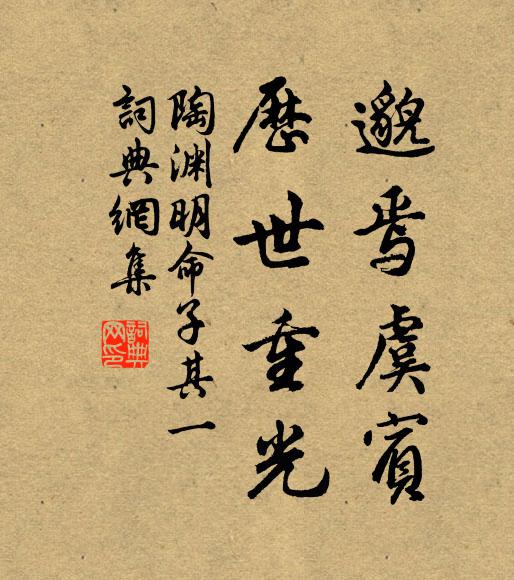 邈焉虞賓
歷世重光
陶渊明命子其一
詞典網集
詞典网印